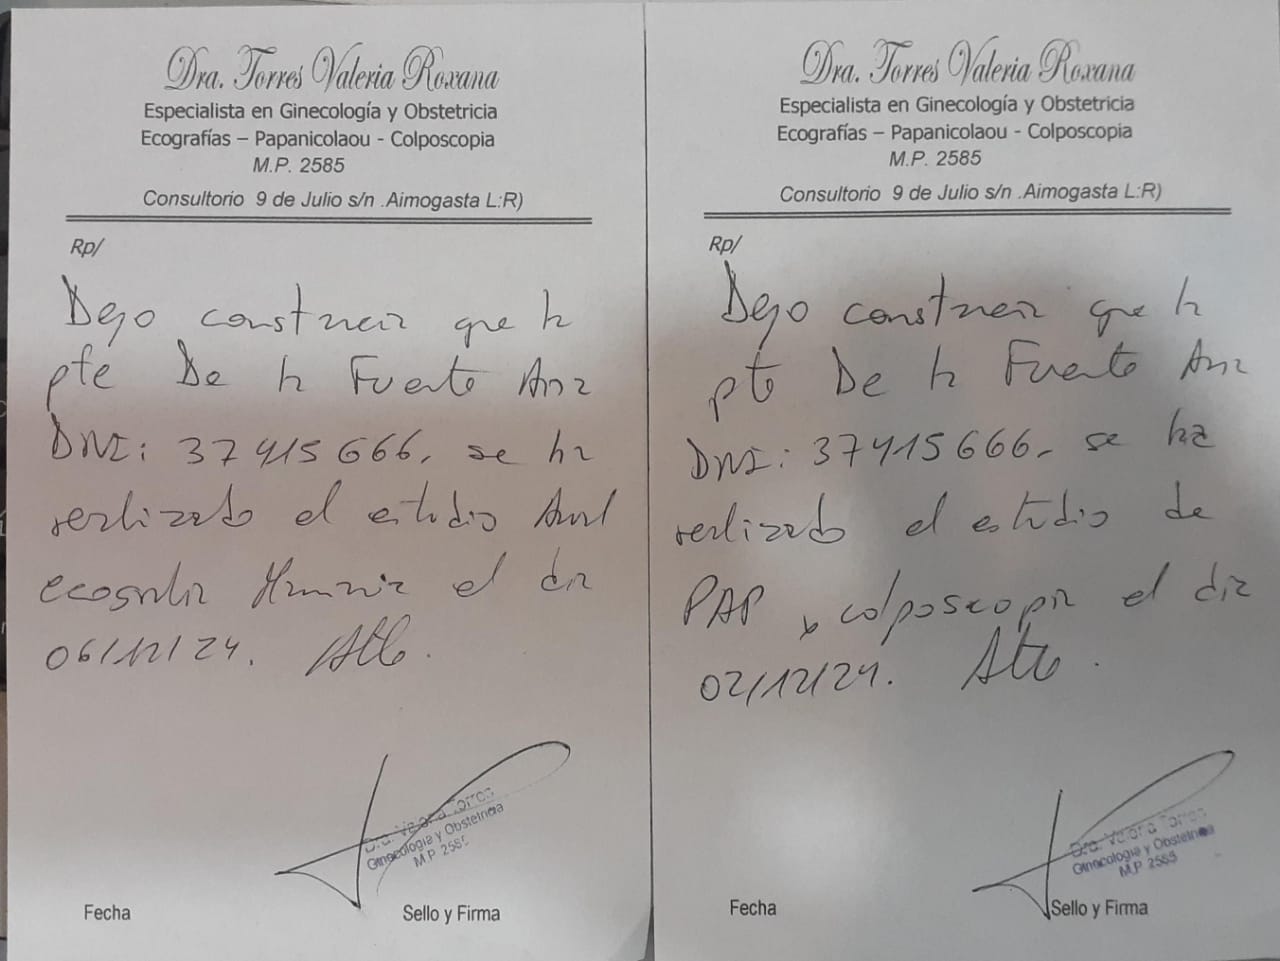 Dra. Torres Valeria Roxana
Especialista en Ginecología y Obstetricia
Ecografías – Papanicolaou - Colposcopia
M.P. 2585
Consultorio 9 de Julio s/n .Aimogasta L:R)
Rp/
Dejo constancia que la
pte De la Fuente Ana
DNI: 37415666, se ha
realizado el estudio Anual
ecografia Mamaria el dia
06/12/24. Atte.
Dra. Valeria Torres
Ginecología y Obstetricia
M.P. 2585
Fecha
Sello y Firma
Dra. Torres Valeria Roxana
Especialista en Ginecología y Obstetricia
Ecografías – Papanicolaou - Colposcopia
M.P. 2585
Consultorio 9 de Julio s/n .Aimogasta L:R)
Rp/
Dejo constancia que la
pte De la Fuente Ana
DNI: 37415666, se ha
realizado el estudio de
PAP y colposcopia el dia
02/12/24. Atte.
Dra. Valeria Torres
Ginecología y Obstetricia
M.P. 2585
Fecha
Sello y Firma